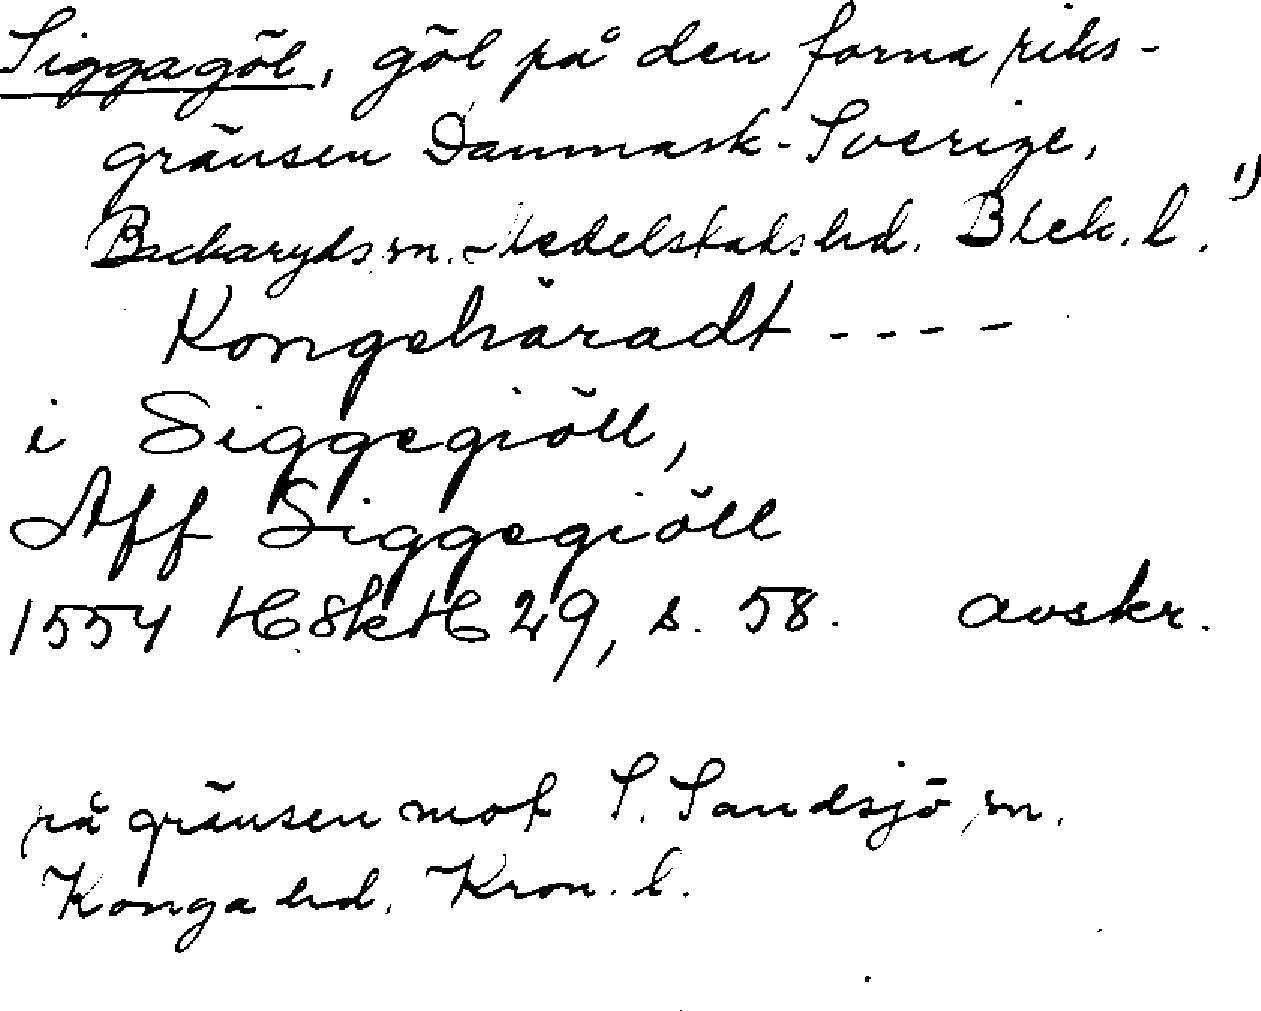 Siggagöl, göl på den forna riks-
gränsen Danmark-Sverige,
Backaryds sn. Medelstads hd. Blek. l. 1)
Kongehäradt ----
i Siggegiöll,
Aff Siggegiöll
1554 HSkH 29, s. 58. avskr.
på gränsen mot S. Sandsjö sn.
Konga hd. Kron. l.